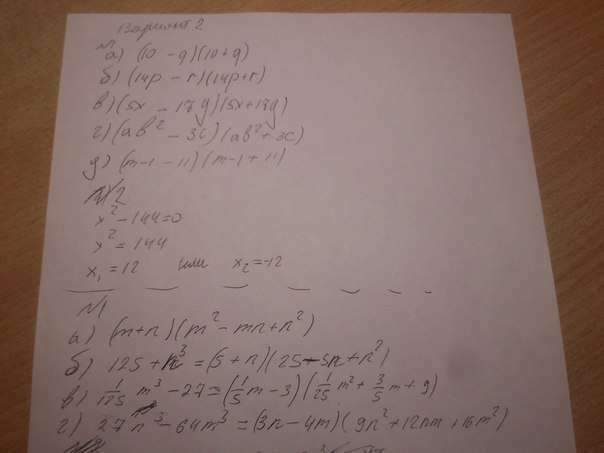 Вариант 2
№1
а) (10 - q)(10+q)
б) (14p - r)(14p+r)
в) (5x - 17y)(5x+17y)
г) (ab² - 3c)(ab² + 3c)
д) (m-1-11)(m-1+11)
№2
x² - 144=0
x² = 144
x₁ = 12 или x₂ = -12
№1
а) (m+n)(m² - mn + n²)
б) 125 + n³ = (5 + n)(25 - 5n + n²)
в) 1/125 m³ - 27 = (1/5 m - 3)(1/25 m² + 3/5 m + 9)
г) 27n³ - 64m³ = (3n - 4m)(9n² + 12nm + 16m²)